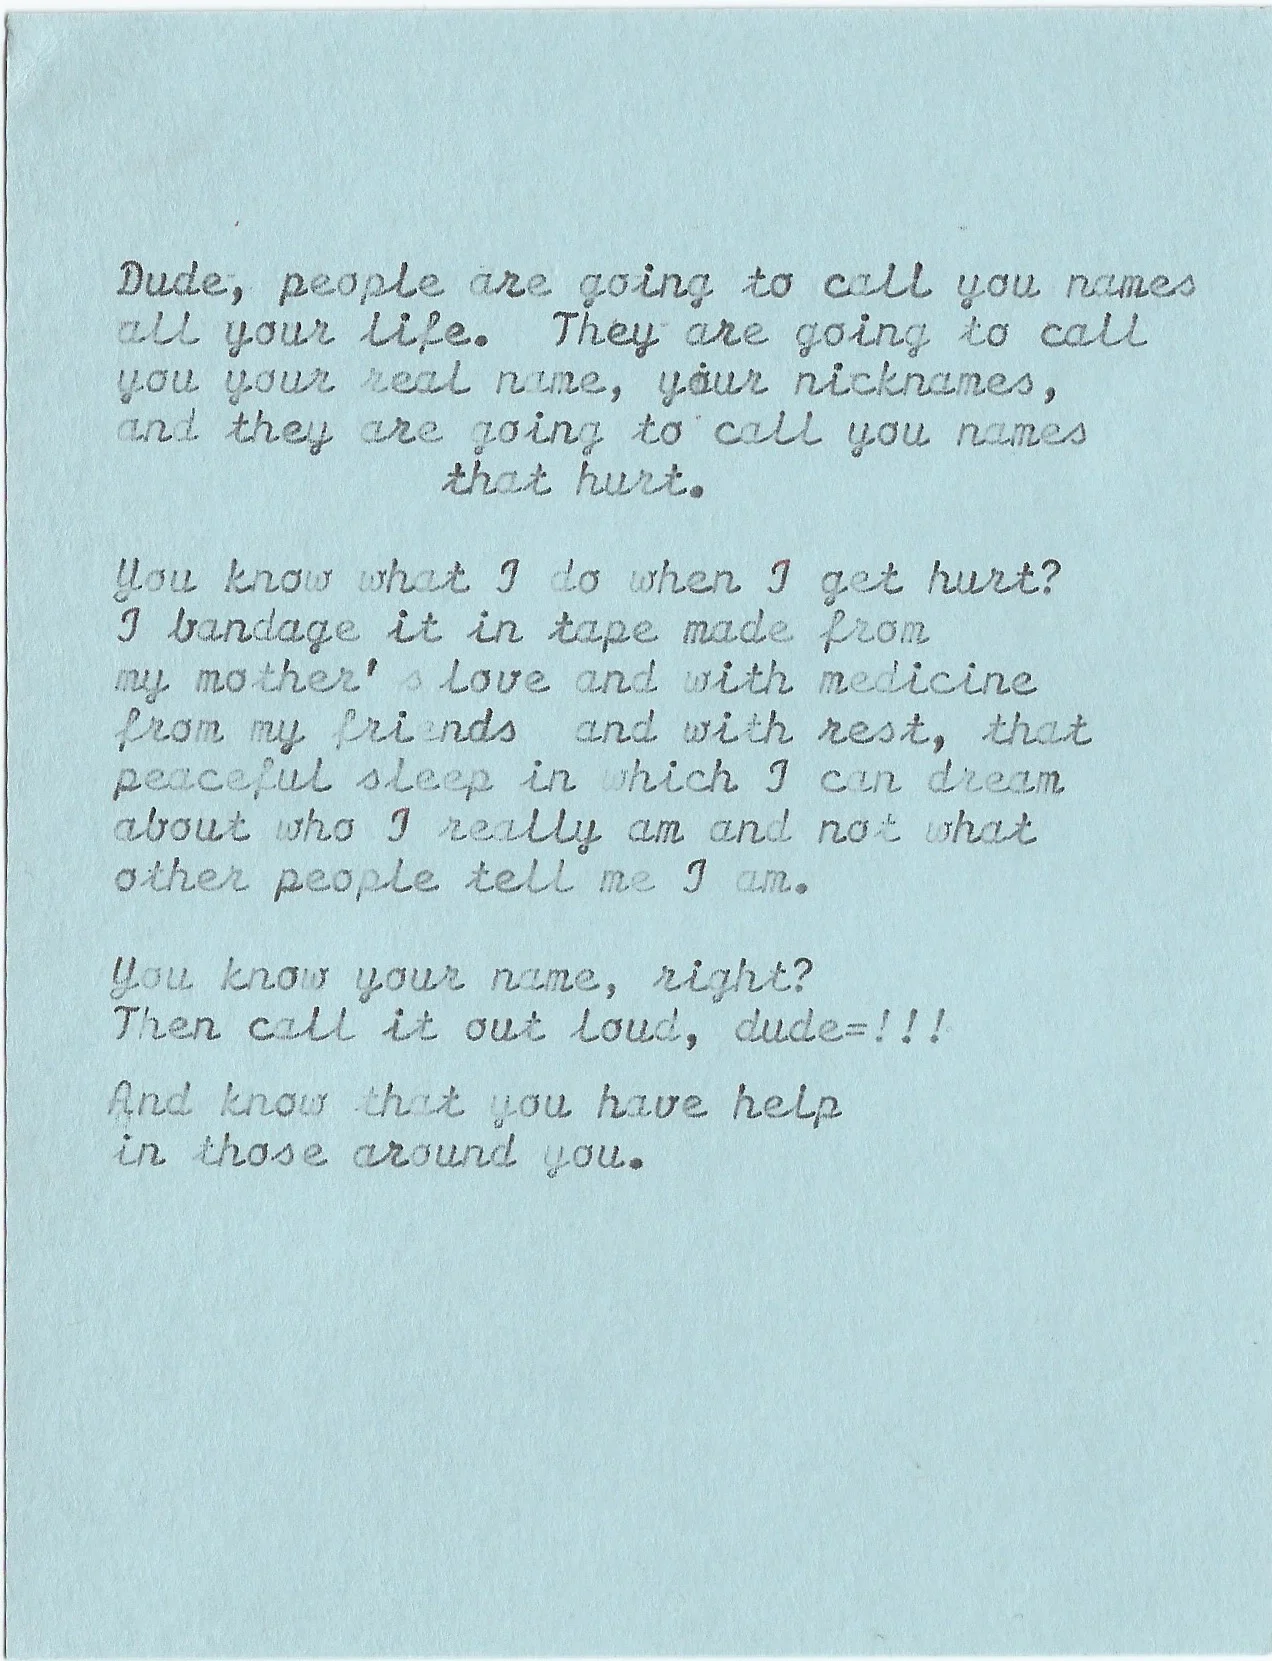 Dude, people are going to call you names
all your life.  They are going to call
you your real name, your nicknames,
and they are going to call you names
that hurt.
You know what I do when I get hurt?
I bandage it in tape made from
my mother's love and with medicine
from my friends  and with rest, that
peaceful sleep in which I can dream
about who I really am and not what
other people tell me I am.
You know your name, right?
Then call it out loud, dude=!!!
And know that you have help
in those around you.